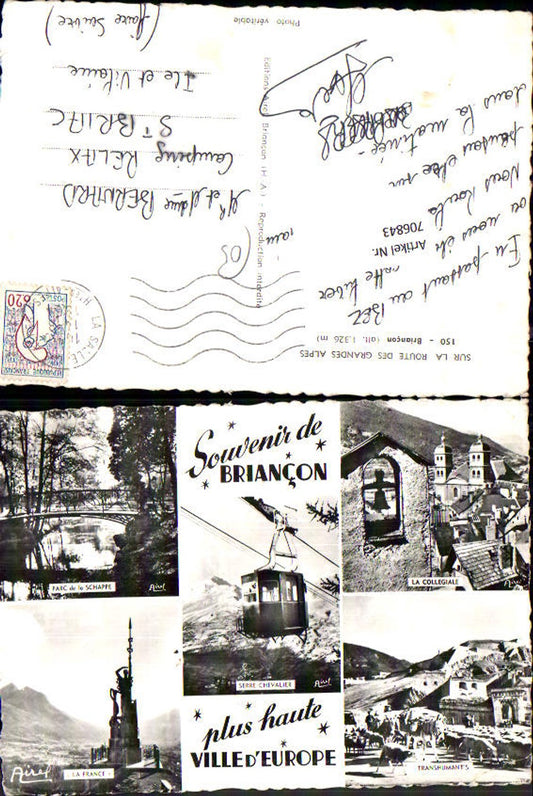 SUR LA ROUTE DES GRANDES ALPES
150 - Briançon (alt. 1.326 m)
En passant au BEZ
où nous
cette hiver
Nous
pensons être sur
dans la matinée
Artikel Nr.
706843
Photo véritable
Briançon (H.A.) - Reproduction interdite
LA SALLE
REPUBLIQUE FRANÇAISE
0,20
Mr et Mme BERNARD
Camping RELAX
St BRIAC
Ile et Vilaine
(faire suivre)
Souvenir de
BRIANÇON
PARC de la SCHAPPE
LA COLLEGIALE
SERRE CHEVALIER
LA FRANCE
TRANSHUMANTS
plus haute
VILLE d'EUROPE